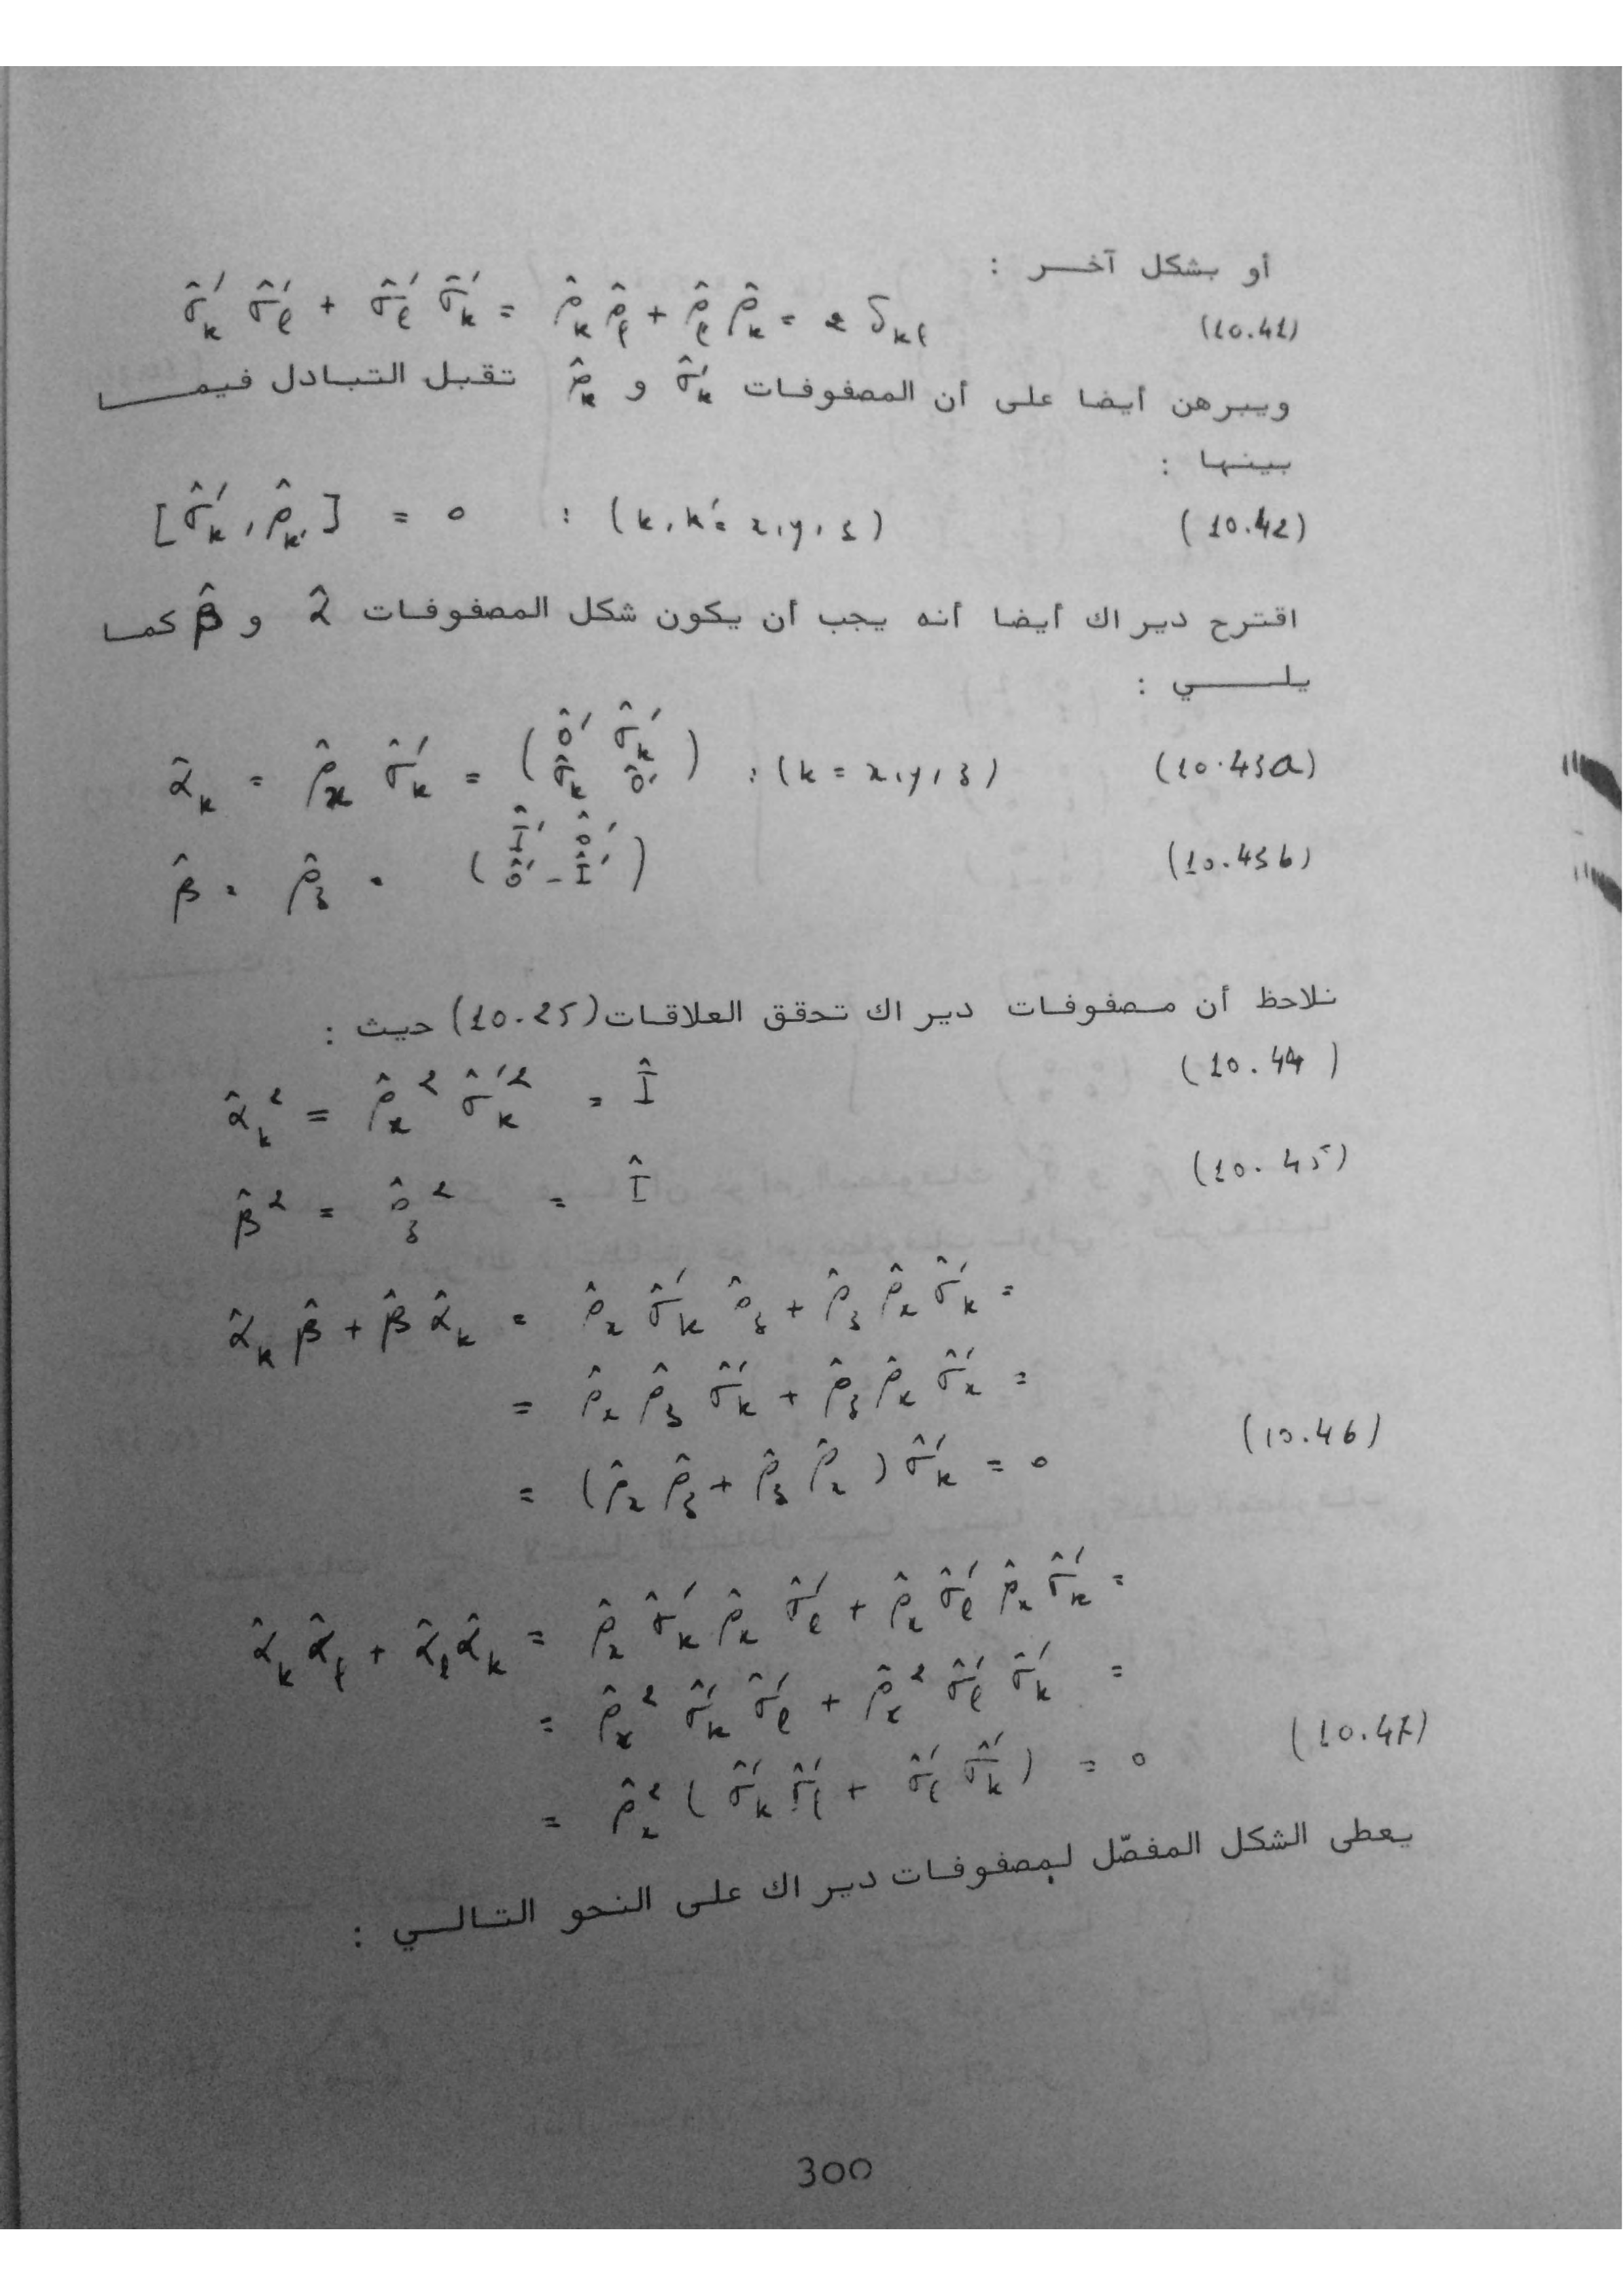 أو بشكل آخر :
σ̂'ₖ σ̂'ℓ + σ̂'ℓ σ̂'ₖ = ρ̂ₖ ρ̂ℓ + ρ̂ℓ ρ̂ₖ = 2 δₖℓ (10.41)
ويبرهن أيضا على أن المصفوفات σ̂'ₖ و ρ̂ₖ تقبل التبادل فيما
بينها :
[σ̂'ₖ , ρ̂ₖ'] = 0 : (k, k' = x, y, z) (10.42)
اقترح ديراك أيضا أنه يجب أن يكون شكل المصفوفات α̂ و β̂ كما
يلي :
α̂ₖ = ρ̂ₓ σ̂'ₖ = ( ô' σ̂'ₖ
σ̂ₖ ô' ) : (k = x, y, z) (10.43a)
β̂ = ρ̂_z = ( Î' ô'
ô' - Î' ) (10.43b)
نلاحظ أن مصفوفات ديراك تحقق العلاقات (10.25) حيث :
α̂ₖ² = ρ̂ₓ² σ̂'ₖ² = Î (10.44)
β̂² = ρ̂_z² = Î (10.45)
α̂ₖ β̂ + β̂ α̂ₖ = ρ̂ₓ σ̂'ₖ ρ̂_z + ρ̂_z ρ̂ₓ σ̂'ₖ =
= ρ̂ₓ ρ̂_z σ̂'ₖ + ρ̂_z ρ̂ₓ σ̂'ₓ =
= (ρ̂ₓ ρ̂_z + ρ̂_z ρ̂ₓ) σ̂'ₖ = 0 (10.46)
α̂ₖ α̂ℓ + α̂ℓ α̂ₖ = ρ̂ₓ σ̂'ₖ ρ̂ₓ σ̂'ℓ + ρ̂ₓ σ̂'ℓ ρ̂ₓ σ̂'ₖ =
= ρ̂ₓ² σ̂'ₖ σ̂'ℓ + ρ̂ₓ² σ̂'ℓ σ̂'ₖ =
= ρ̂ₓ² ( σ̂'ₖ σ̂'ℓ + σ̂'ℓ σ̂'ₖ ) = 0 (10.47)
يعطى الشكل المفصّل لمصفوفات ديراك على النحو التالي :
300